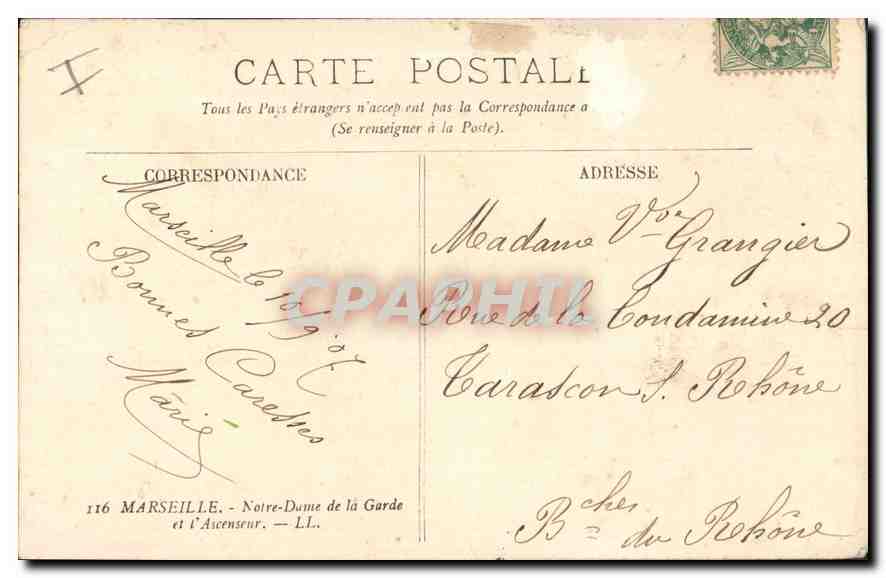 CARTE POSTALE
Tous les Pays étrangers n'acceptent pas la Correspondance a
(Se renseigner à la Poste).
CORRESPONDANCE
Marseille le 10/9.07
Bonnes Caresses
Marie
116 MARSEILLE. - Notre-Dame de la Garde
et l'Ascenseur. — LL.
ADRESSE
Madame Vve Grangier
Rue de la Condamine 20
Tarascon s. Rhône
Bches du Rhône
CPAPHIL